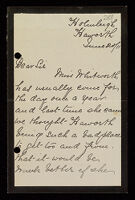 Holmleigh
Haworth
June 24/
Dear Sir
Miss Whitworth
has usually come for
the day once a year
and last time she came
we thought Haworth
being such a
get too and from
that it would be
much better if she